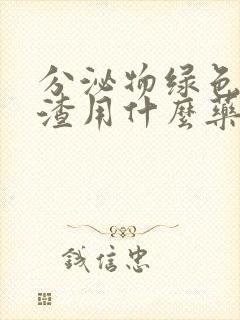 分泌物绿色
渣用什麼藥
钱信忠